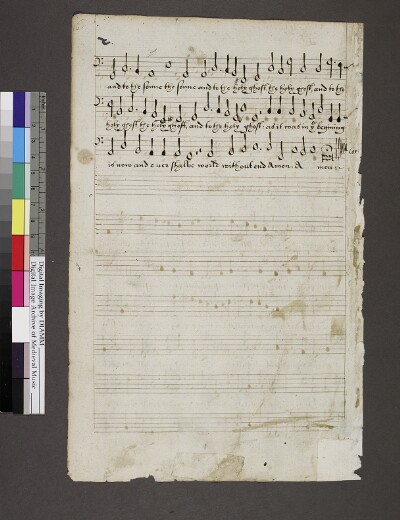 and to the sonne the sonne and to the holy ghost the holy gost, and to the
holy ghost the holy ghost, and to the holy ghost: as it was in yͤ begining
is now and ever shalbe world without end Amen. A men
Digital Imaging by DIAMM
Digital Image Archive of Medieval Music